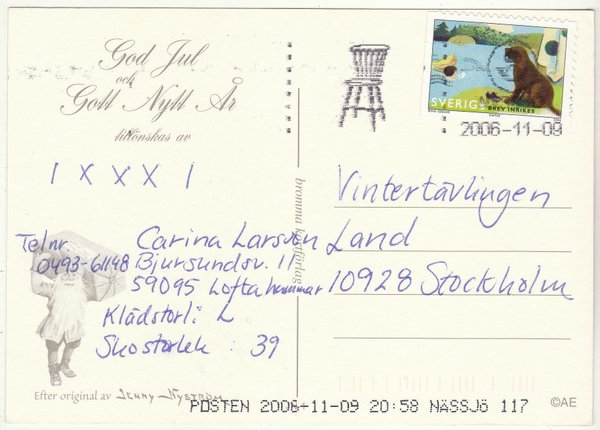 God Jul
och
Gott Nytt År
tillönskas av
SVERIGE BREV INRIKES
2006-11-09
1 X X X 1
Vintertävlingen
Land
10928 Stockholm
Telnr.
0493-61148
Carina Larsson
Bjursundsv. 11
59095 Loftahammar
Klädstorl: L
Skostorlek: 39
bromma konstförlag
Efter original av JENNY NYSTRÖM
©AE
POSTEN 2006-11-09 20:58 NÄSSJÖ 117